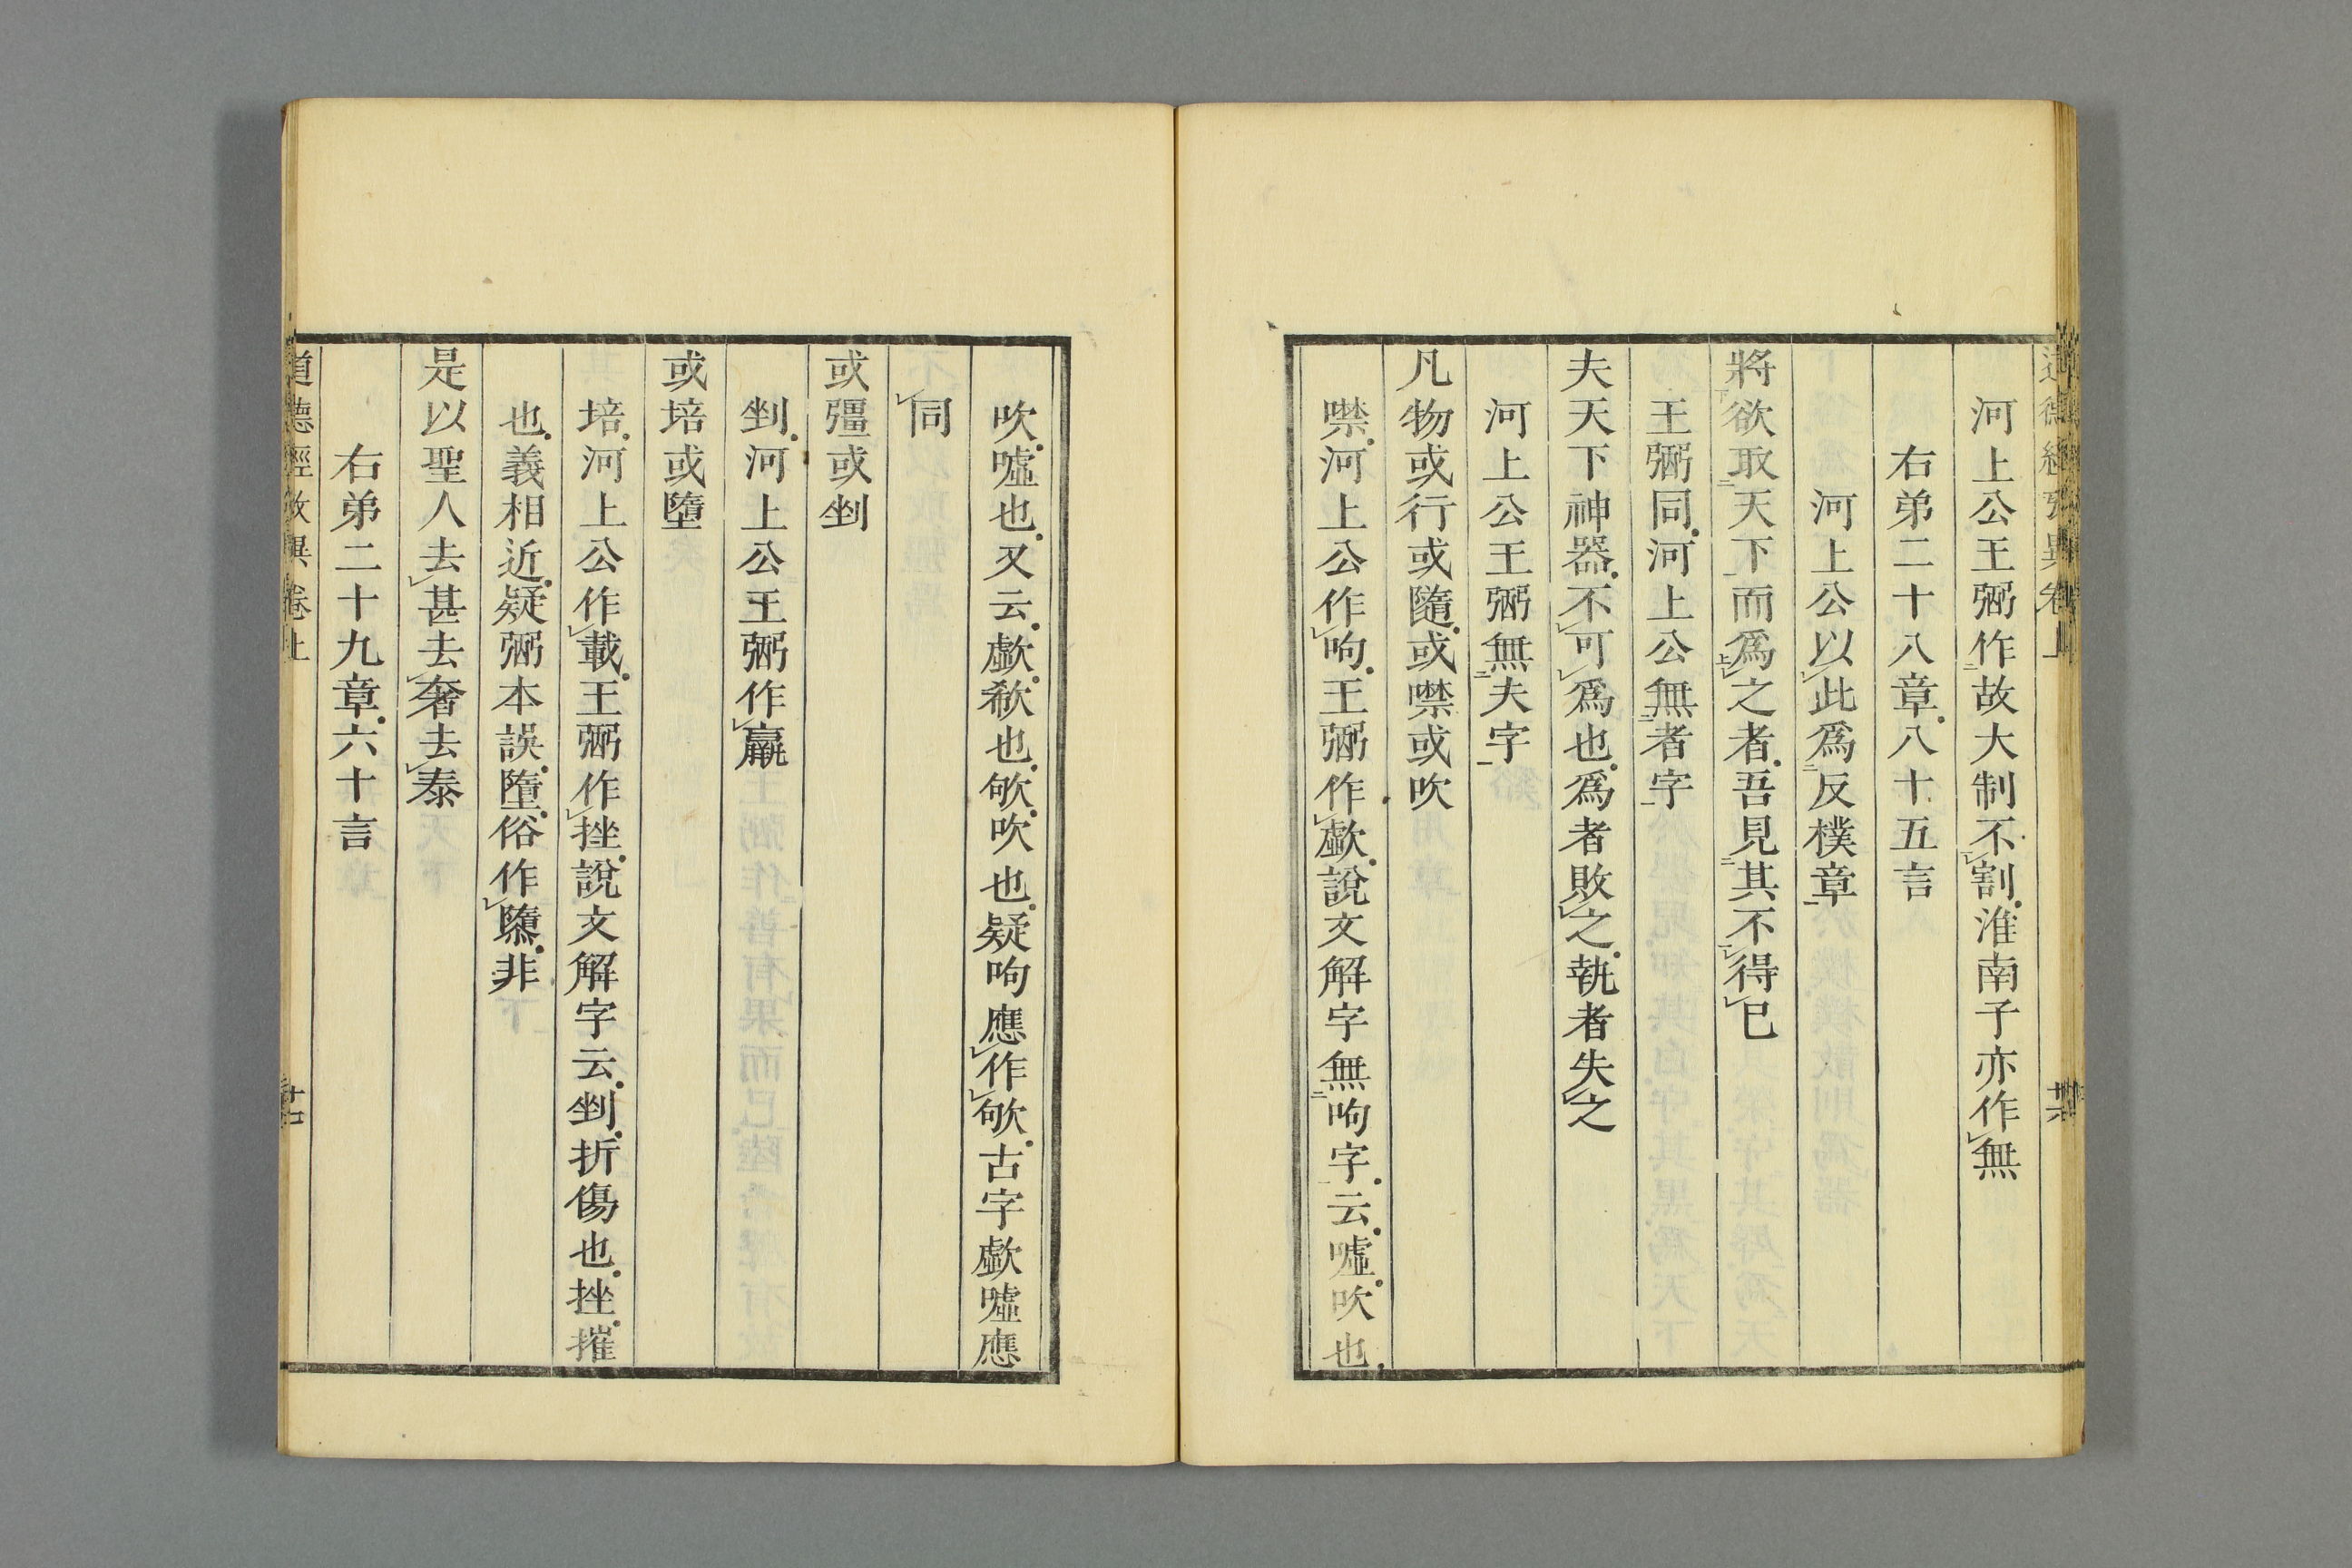 道德經攷異卷上
十六
河上公王弼作故大制不割淮南子亦作無
右弟二十八章八十五言
河上公以此爲反樸章
將欲取天下而爲之者吾見其不得已
王弼同河上公無者字
夫天下神器不可爲也爲者敗之執者失之
河上公王弼無夫字
凡物或行或隨或噤或吹
噤河上公作呴王弼作歔說文解字無呴字云噓吹也
吹噓也又云歔欷也欨吹也疑呴應作欨古字歔噓應
同
或彊或剉
剉河上公王弼作羸
或培或墮
培河上公作載王弼作挫說文解字云剉折傷也挫摧
也義相近疑弼本誤墮俗作隳非
是以聖人去甚去奢去泰
右弟二十九章六十言
道德經攷異卷上
十七